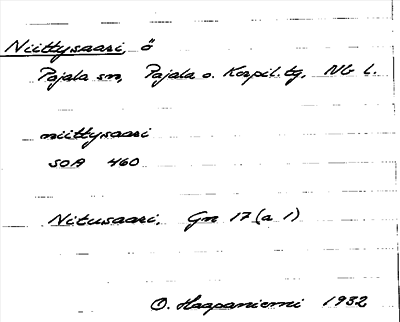 Niittysaari, ö
Pajala sn, Pajala o. Korpil. tg, NB l.
niittysaari
SOA 460
Nitusaari, Gn 17 (a 1)
O. Haapaniemi 1932